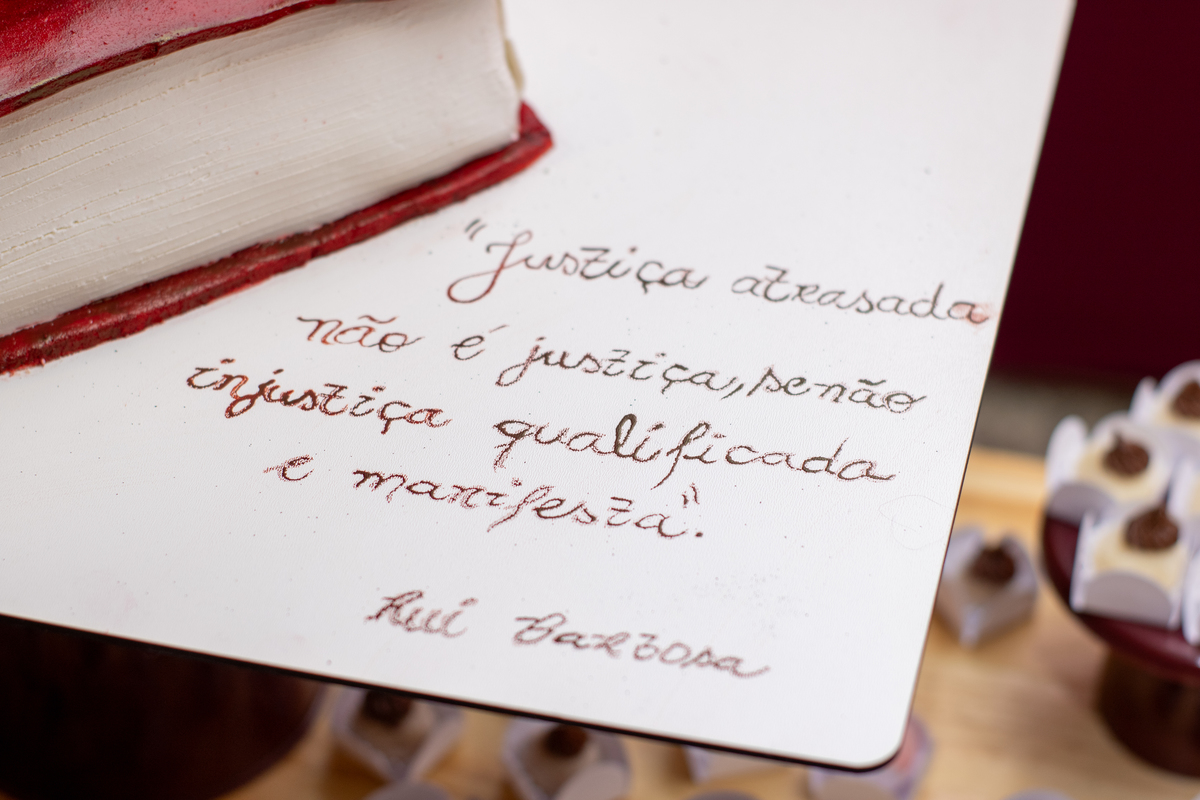 "Justiça atrasada
não é justiça, senão
injustiça qualificada
e manifesta".
Rui Barbosa